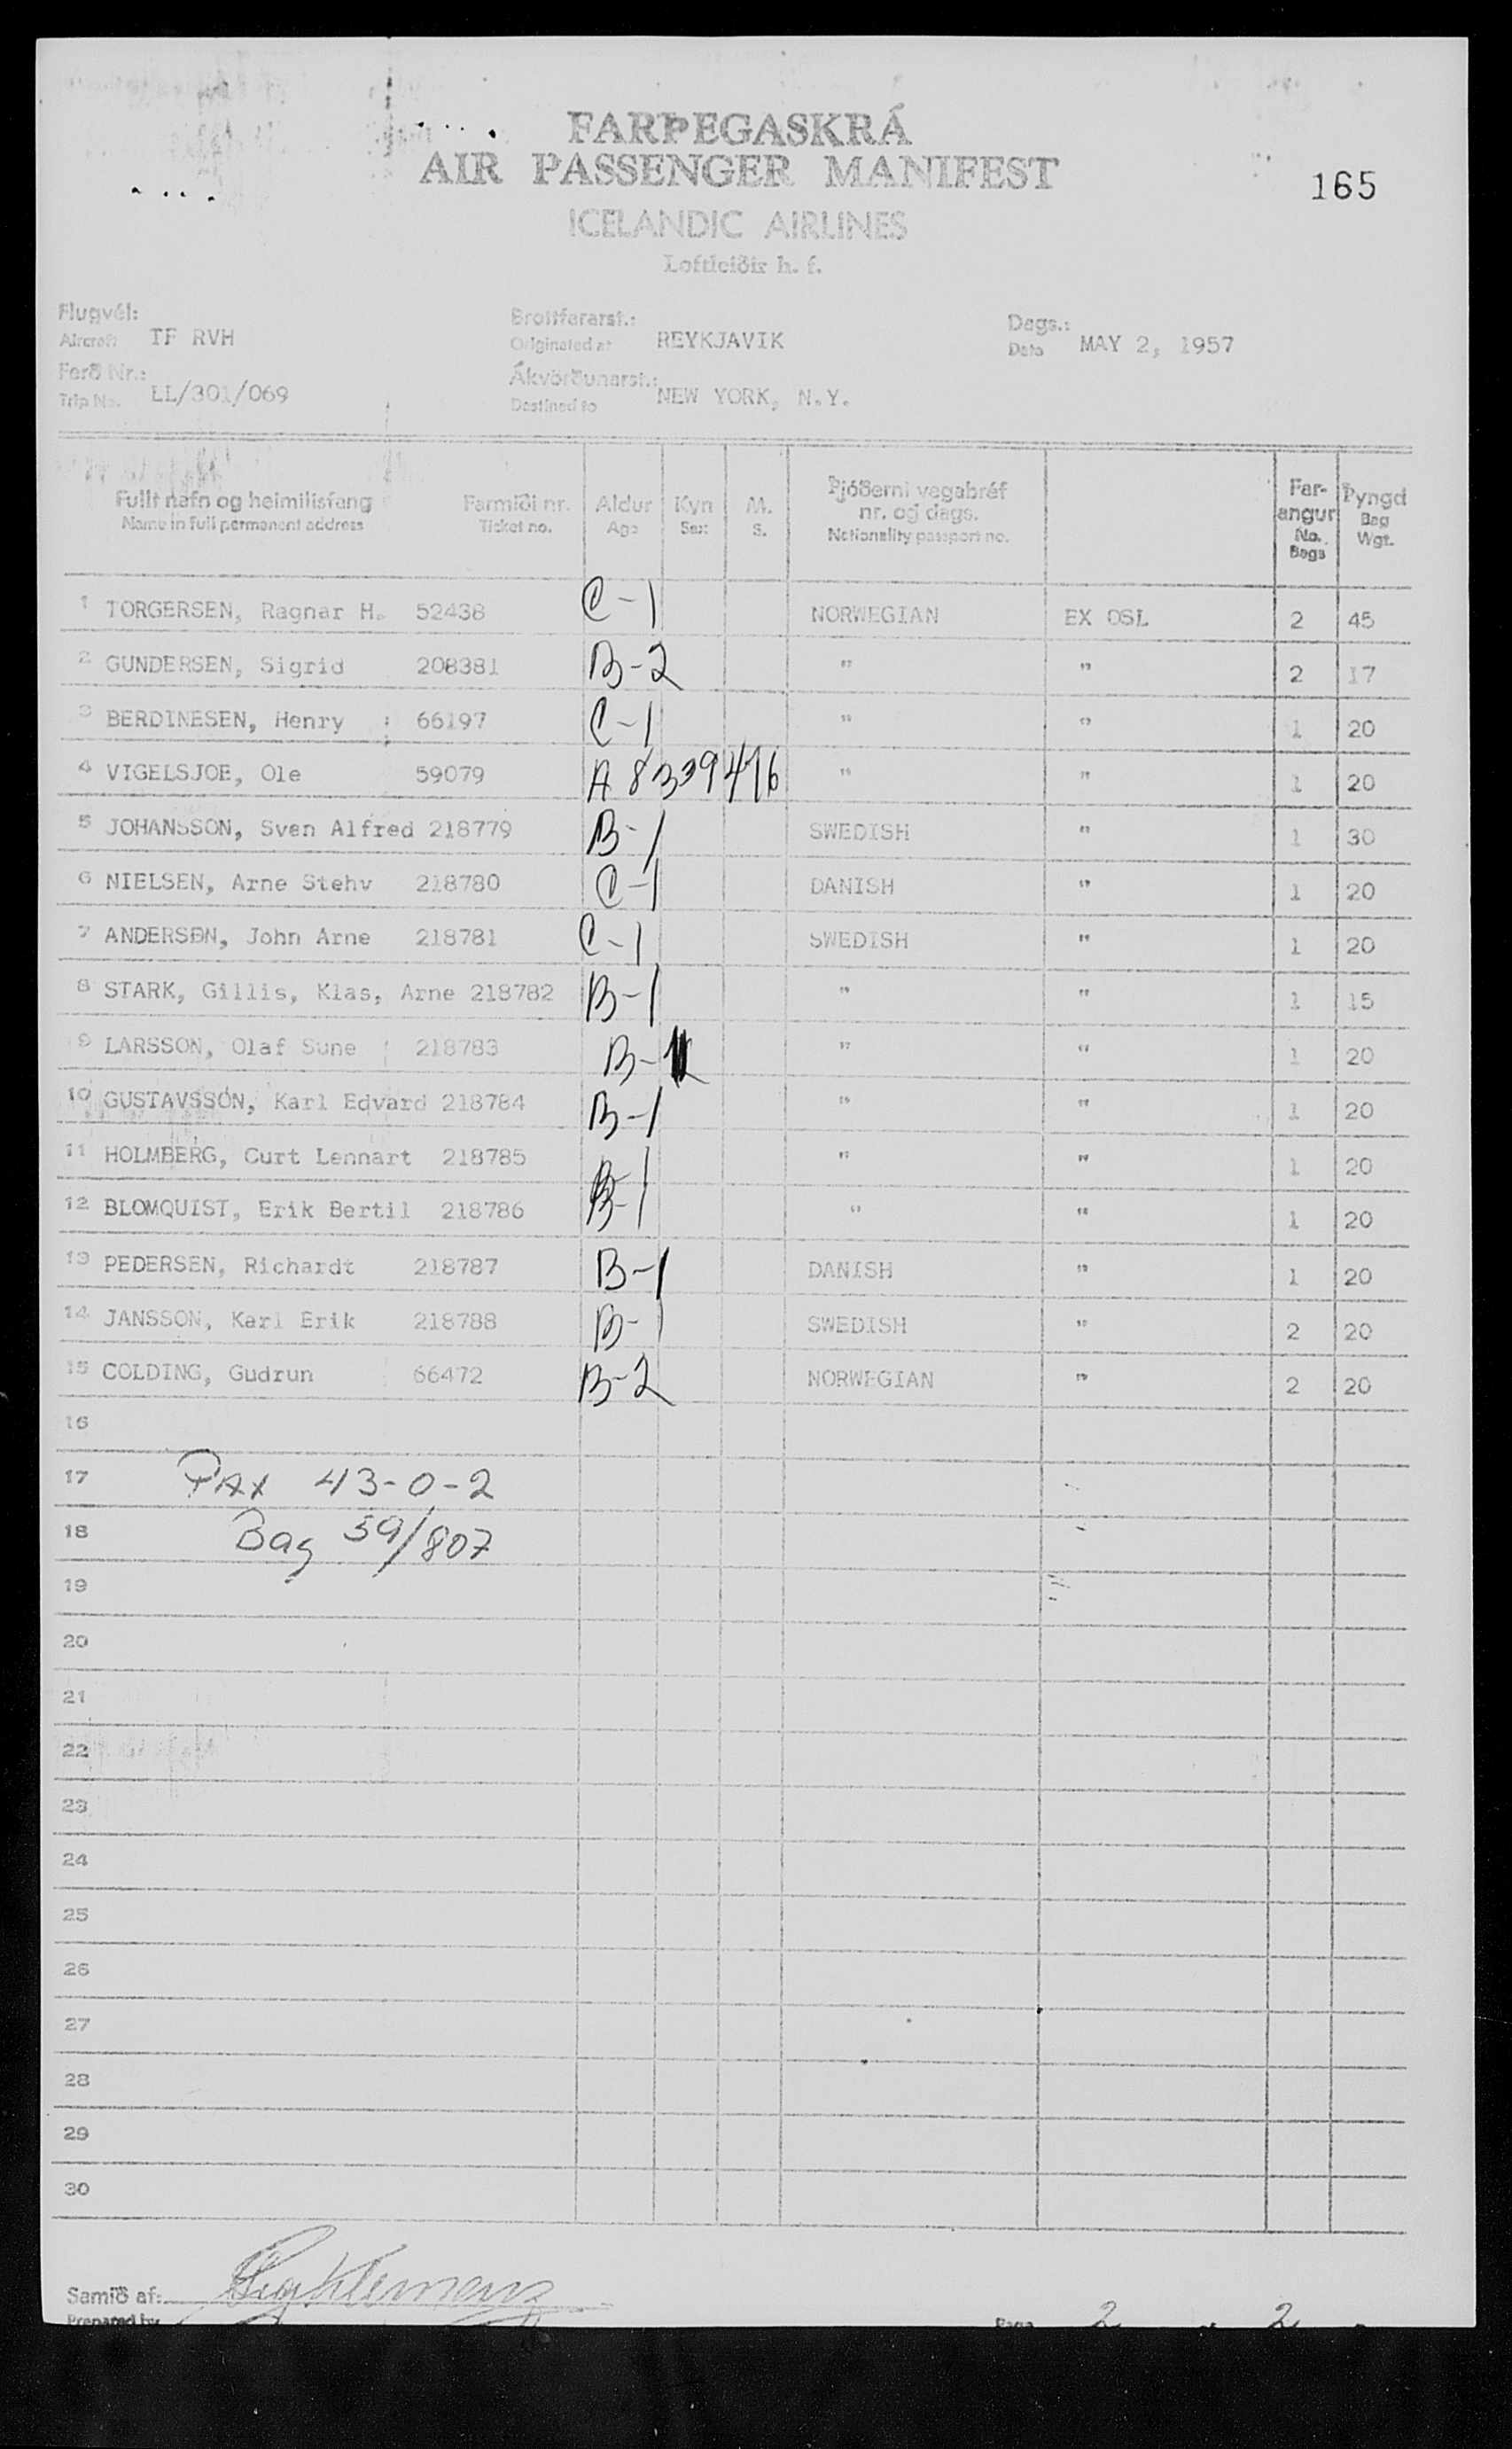 FARÞEGASKRÁ
AIR PASSENGER MANIFEST
165
ICELANDIC AIRLINES
Loftleiðir h. f.
Flugvél:
Aircraft TF RVH
Brottfararst.:
Originated at REYKJAVIK
Dags.:
Date MAY 2, 1957
Ferð Nr.:
Trip No. LL/301/069
Ákvörðunarst.:
Destined to NEW YORK, N.Y.
Fullt nafn og heimilisfang Farmiði nr. Aldur Kyn M. Þjóðerni vegabréf nr. og dags. Far-angur Þyngd
Name in full permanent address Ticket no. Age Sex S. Nationality passport no. No. Bags Bag Wgt.
1 TORGERSEN, Ragnar H. 52438 C-1 NORWEGIAN EX OSL 2 45
2 GUNDERSEN, Sigrid 208381 B-2 " " 2 17
3 BERDINESEN, Henry 66197 C-1 " " 1 20
4 VIGELSJOE, Ole 59079 A 8339476 " " 1 20
5 JOHANSSON, Sven Alfred 218779 B-1 SWEDISH " 1 30
6 NIELSEN, Arne Stehv 218780 C-1 DANISH " 1 20
7 ANDERSEN, John Arne 218781 C-1 SWEDISH " 1 20
8 STARK, Gillis, Klas, Arne 218782 B-1 " " 1 15
9 LARSSON, Olaf Sune 218783 B-1 " " 1 20
10 GUSTAVSSON, Karl Edvard 218784 B-1 " " 1 20
11 HOLMBERG, Curt Lennart 218785 B-1 " " 1 20
12 BLOMQUIST, Erik Bertil 218786 B-1 " " 1 20
13 PEDERSEN, Richardt 218787 B-1 DANISH " 1 20
14 JANSSON, Karl Erik 218788 B-1 SWEDISH " 2 20
15 COLDING, Gudrun 66472 B-2 NORWEGIAN " 2 20
16
17 PAX 43-0-2
18 Bag 59/807
19
20
21
22
23
24
25
26
27
28
29
30
Samið af:
Prepared by
Page 2 of 2